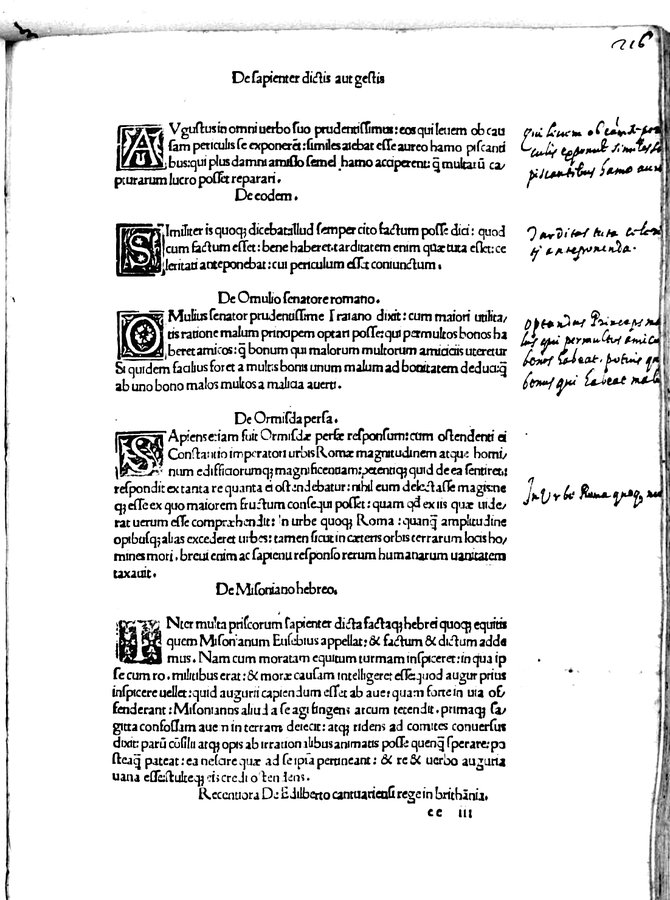 216
De sapienter dictis aut gestis
AVgustus in omni uerbo suo prudentissimus: eos qui leuem ob cau
sam periculis se exponerēt: similes aiebat esse aureo hamo piscanti
bus: qui plus damni amisso semel hamo acciperent: q̄ multarū ca
pturarum lucro posset reparari.
De eodem.
SImiliter is quoq; dicebat illud semper cito factum posse dici: quod
cum factum esset: bene haberet. tarditatem enim quæ tuta esset: ce
leritati anteponebat: cui periculum esset coniunctum.
De Omulio senatore romano.
OMulius senator prudentissime Traiano dixit: cum maiori utilita
tis ratione malum principem optari posse: qui permultos bonos ha
beret amicos: q̄ bonum qui malorum multorum amiciciis uteretur
Si quidem facilius foret a multis bonis unum malum ad bonitatem deduci: q̄
ab uno bono malos multos a malicia auerti.
De Ormisda persa.
SApiens etiam fuit Ormisdæ persæ responsum: cum ostendenti ei
Constantio imperatori urbis Romæ magnitudinem atque homi
num ediffitiorumq; magnificentiam: petentiq; quid de ea sentiret:
respondit ex tanta re quanta ei ostendebatur: nihil eum delectasse magis: ne
q; esse ex quo maiorem fructum consequi posset: quam qd ex iis quæ uide
rat uerum esse compræhendit: in urbe quoq; Roma: quanq̄ amplitudine
opibusq; alias excederet urbes: tamen sicut in cæteris orbis terrarum locis ho
mines mori. breui enim ac sapienti responso rerum humanarum uanitatem
taxauit.
De Misoniano hebreo.
INter multa priscorum sapienter dicta factaq; hebrei quoq; equitis
quem Misonianum Eusebius appellat: & factum & dictum adde
mus. Nam cum moratam equitum turmam inspiceret: in qua ip
se cum ro. militibus erat: & moræ causam intelligeret esse quod augur prius
inspicere uellet: quid augurii capiendum esset ab aue: quam forte in uia of
fenderant: Misonianus aliud a se agi fingens arcum tetendit. primaq; sa
gitta confossam auem in terram deiecit: atq; ridens ad comites conuersus
dixit: parū cōsilii atq; opis ab irrationalibus animatis posse quenq̄ sperare: po
steaq̄ pateat: ea nescire quæ ad seipsa pertineant: & re & uerbo auguria
uana esse: stulteq; eis credi ostendens.
Recentiora De Edilberto cantuariensi rege in brithānia.
cc iii
qui leuem ob causā
culis exponūt similes
piscantibus hamo aure
Tarditas tuta
anteponenda.
optandus Princeps ma
lus qui permultos amicos
bonos habeat. potius q̄
bonus qui habeat malos
In Urbe Roma quoq;